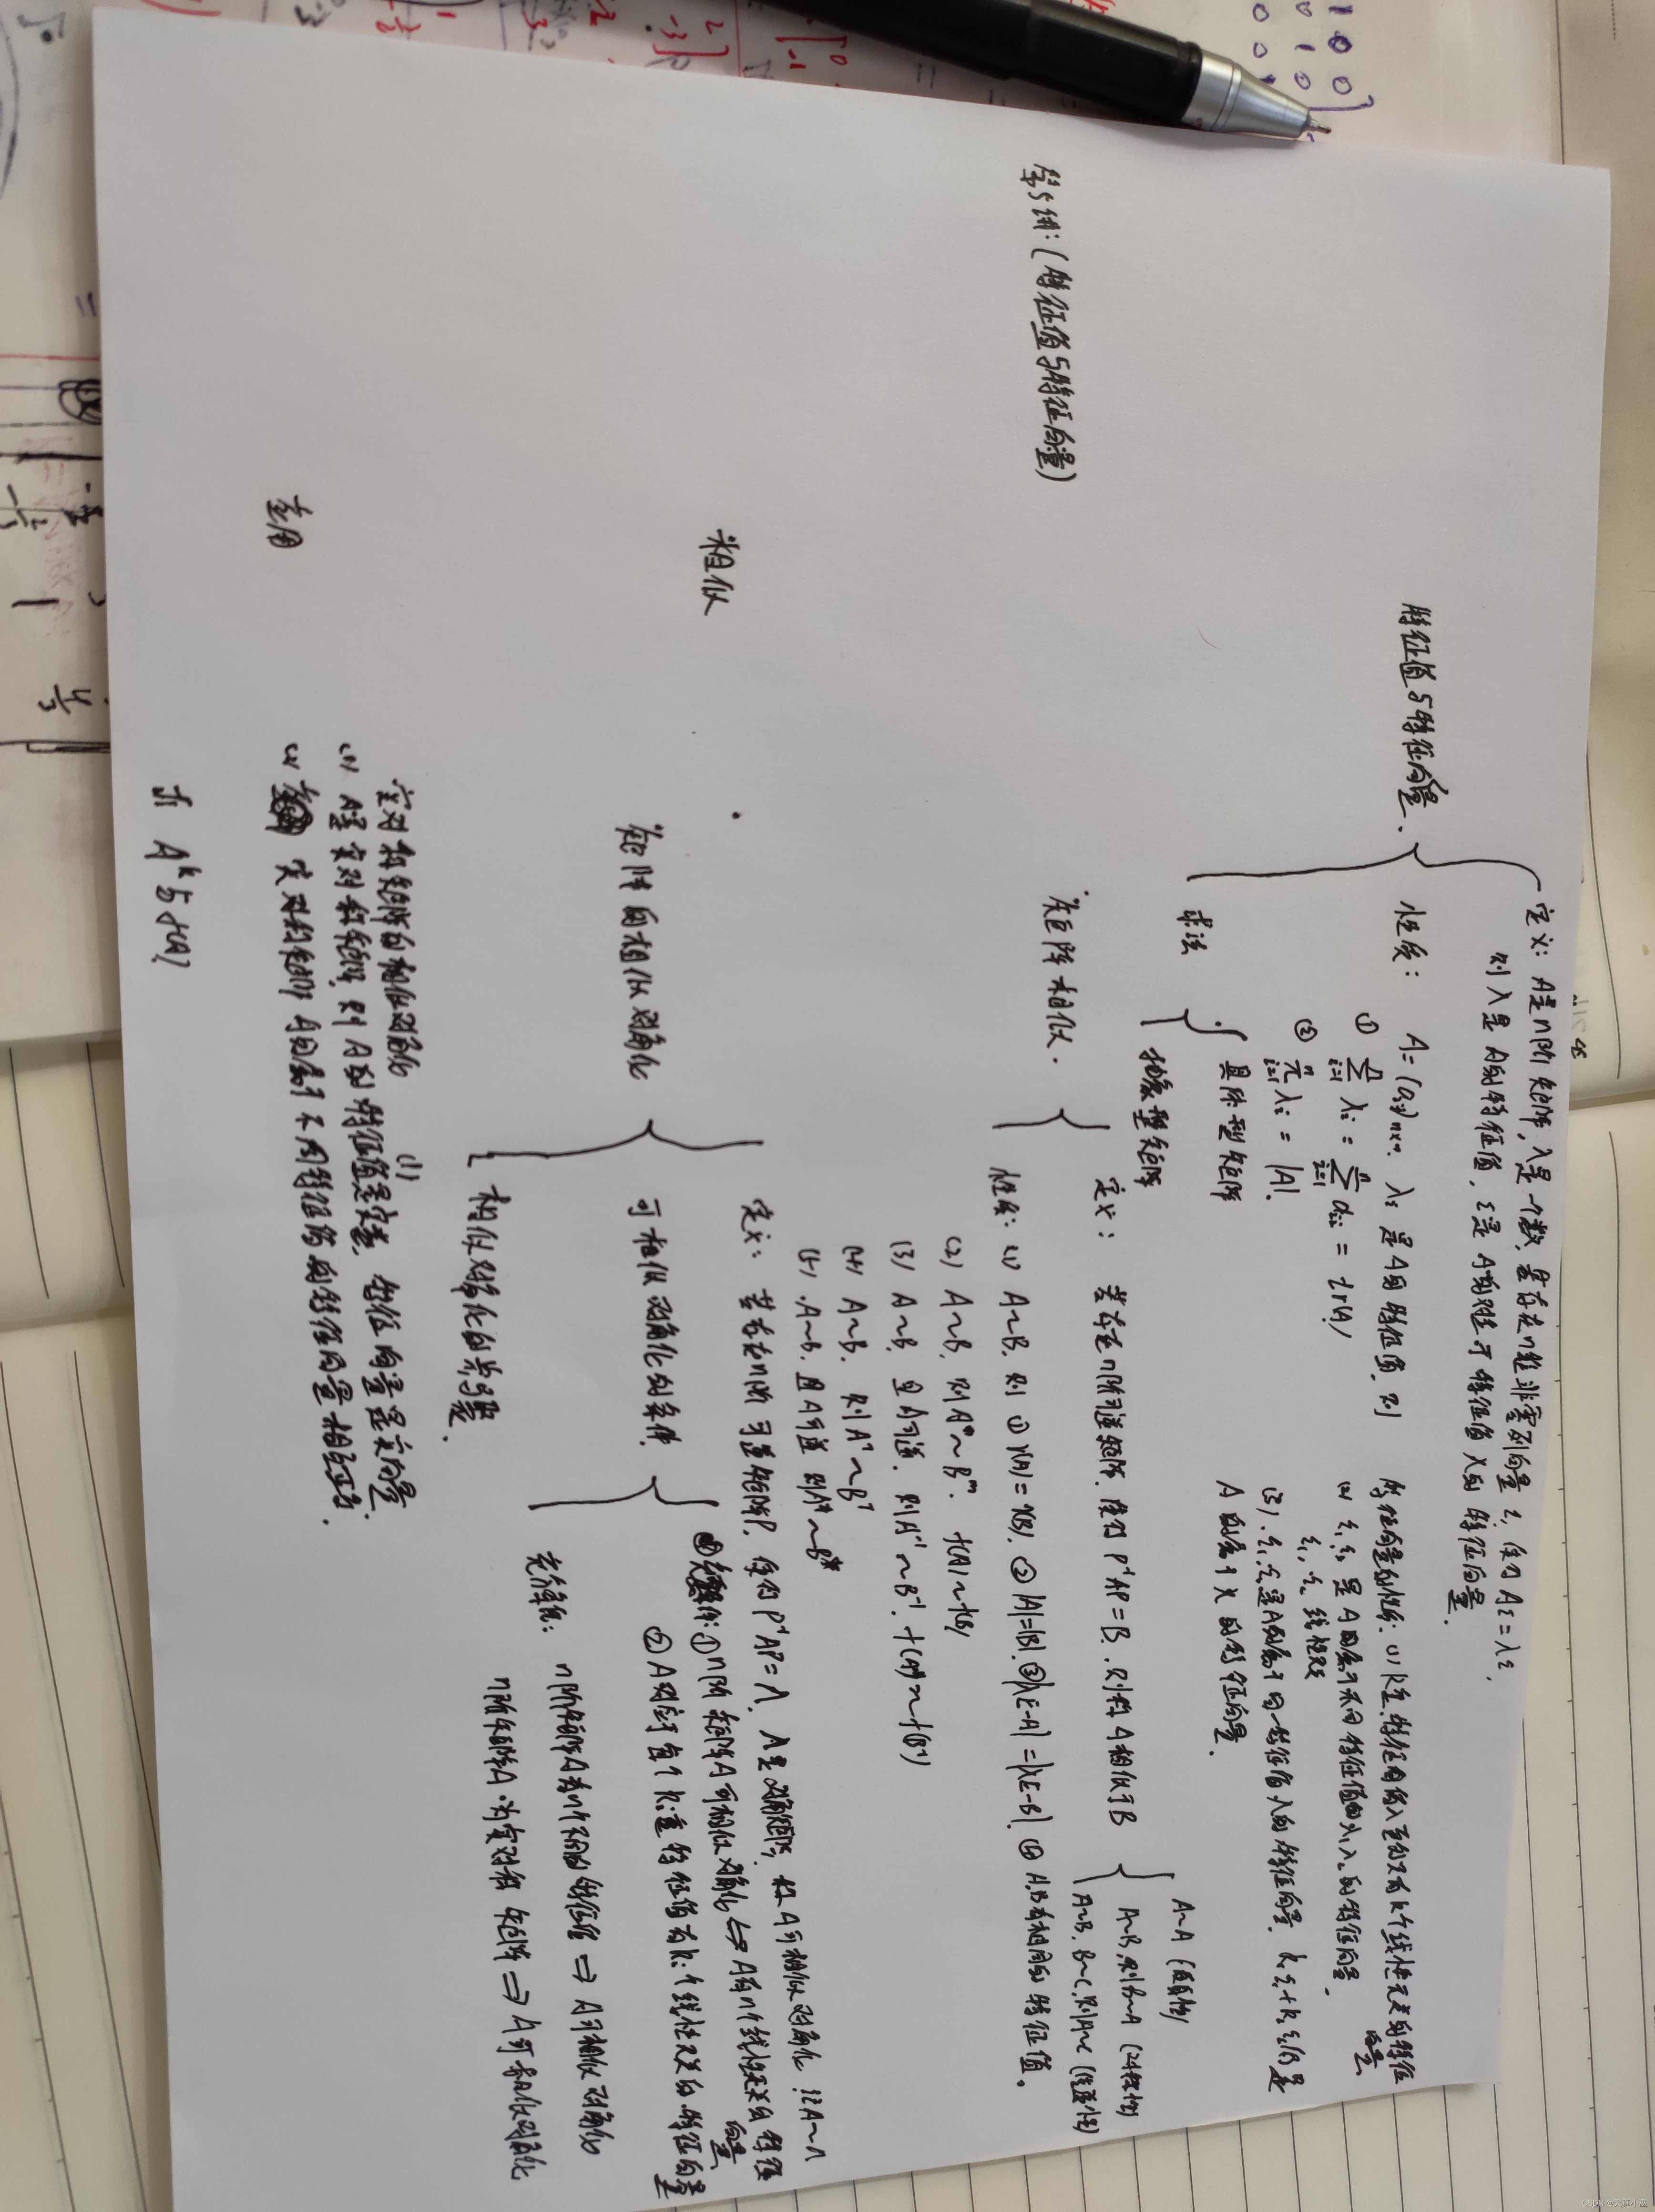 第5讲:(特征值与特征向量)
特征值与特征向量.
定义: A是n阶矩阵,λ是一个数,若存在n维非零列向量ξ,使得Aξ=λξ,
则λ是A的特征值,ξ是A的对应于特征值λ的特征向量.
性质: A=(aij)n×n. λi是A的特征值,则
① Σ(i=1,n) λi = Σ(i=1,n) aii = tr(A)
② π(i=1,n) λi = |A|.
特征向量的性质: (1) k重特征值λ至多只有k个线性无关的特征向量
(2) ξ1,ξ2是A的属于不同特征值的λ1,λ2的特征向量.
ξ1,ξ2线性无关
(3). ξ1,ξ2是A的属于同一特征值λ的特征向量. k1ξ1+k2ξ2仍是
A的属于λ的特征向量.
求法
具体型矩阵
抽象型矩阵
相似
矩阵相似.
定义: 若存在n阶可逆矩阵,使得P⁻¹AP=B.则称A相似于B
A~A (自反性)
A~B,则B~A (对称性)
A~B,B~C,则A~C (传递性)
性质: (1) A~B.则 ① r(A)=r(B). ② |A|=|B|. ③ |λE-A|=|λE-B|. ④ A,B有相同的特征值.
(2) A~B.则Aᵐ~Bᵐ. f(A)~f(B)
(3) A~B,且A可逆.则A⁻¹~B⁻¹. f(A⁻¹)~f(B⁻¹)
(4) A~B.则Aᵀ~Bᵀ
(5). A~B.且A可逆 则A*~B*
矩阵的相似对角化
定义: 若存在n阶可逆矩阵P.使得P⁻¹AP=Λ. Λ是对角矩阵,称A可相似对角化.记A~Λ
可相似对角化的条件.
① n阶矩阵A可相似对角化⇔A有n个线性无关的特征向量
② A对应于每个ki重特征值有ki个线性无关的特征向量
n阶矩阵A有n个不同的特征值⇒A可相似对角化
n阶矩阵A为实对称矩阵⇒A可相似对角化
相似对角化的步骤.
实对称矩阵的相似对角化
(1) A是实对称矩阵,则A的特征值是实数,特征向量是实向量.
(2) 实对称矩阵A的属于不同特征值的特征向量相互正交.
应用
求Aᵏ与f(A)
CSDN